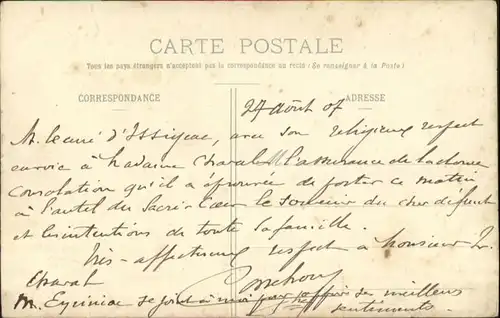 CARTE POSTALE
Tous les pays étrangers n'acceptent pas la correspondance au recto (Se renseigner à la Poste)
CORRESPONDANCE
ADRESSE
27 Août 07
M. le curé d'Issigeac, avec son religieux respect
envoie à Madame Charal l'assurance de la douce
consolation qu'il a éprouvée de porter ce matin
à l'autel du Sacré Cœur le souvenir du cher défunt
et les intentions de toute la famille.
Très affectueux respect à Monsieur Dr.
Charal
M. se joint à moi pour offrir ses meilleurs
sentiments.